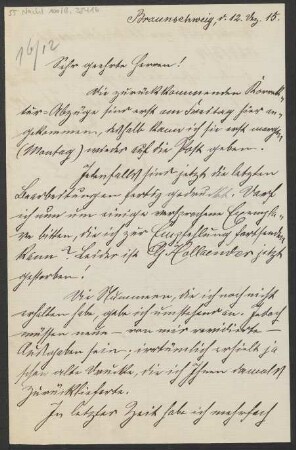 16/12
Braunschweig, d. 12. Dez. 15.
Sehr geehrte Herren!
Die zurückkommenden Korrek-
tur-Abzüge sind erst am Freitag hier an-
gekommen, deshalb kann ich sie erst morgen
(Montag) wieder auf die Post geben.
Jedenfalls sind jetzt die letzten
Bearbeitungen fertig Darf
ich nun um einige Exemplare
bitten, die ich zur Empfehlung fortsenden
kann? Leider ist G. Hollaender jetzt
gestorben!
Die Nummern, die ich noch nicht
erhalten habe, gebe ich umstehend an. Jedoch
müssen neue – von mir revidierte –
Ausgaben sein; irrtümlich erhielt ja
schon alte Drucke, die ich Ihnen damals
zurücklieferte.
In letzter Zeit habe ich mehrfach